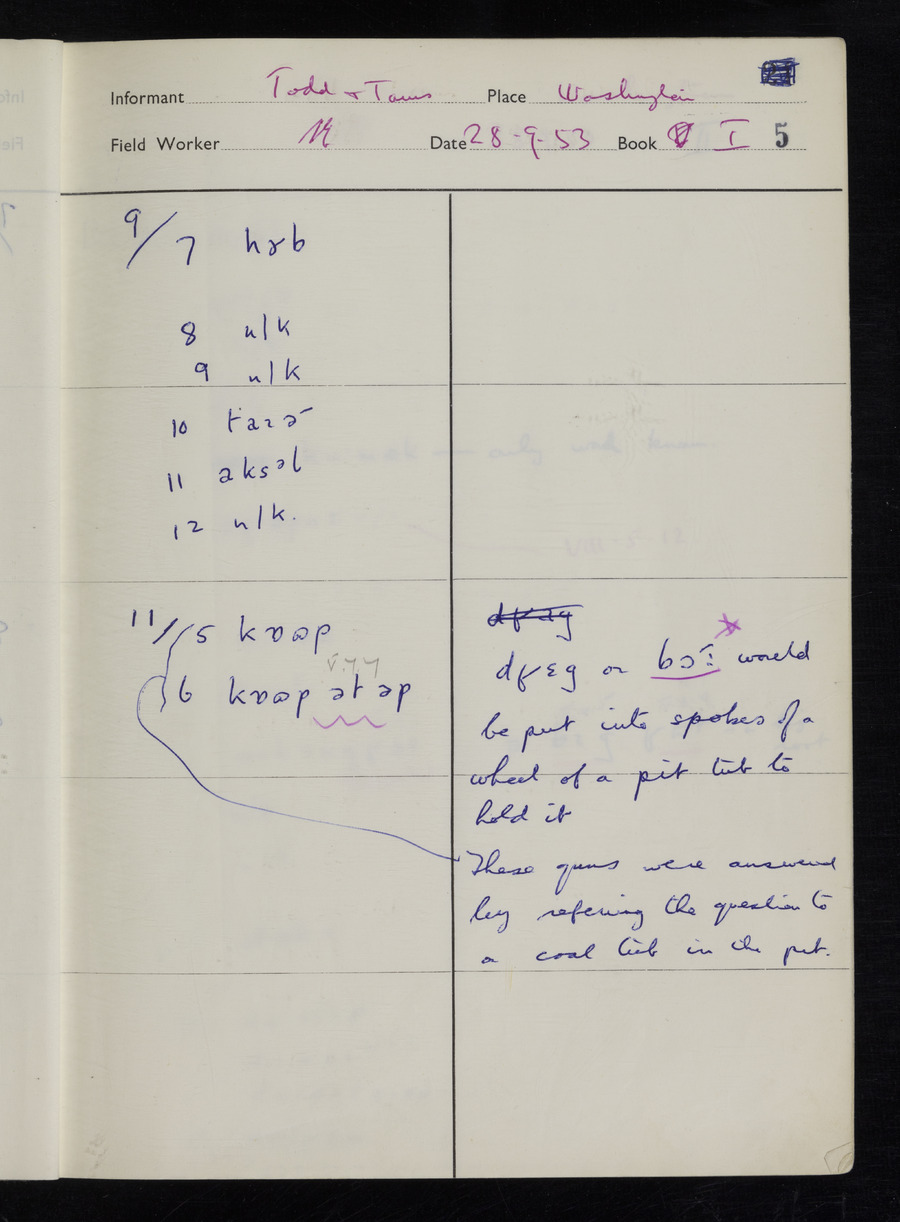 Informant Todd + Place Washington
Field Worker Date 28-9-53 Book I 5
9/7 hɤb
8 n/k
9 n/k
10
11 aksəl
12 n/k.
11/5 kɒɷp
V.7.7
6 kɒɷp ət əp
or would
be put into spokes of a
wheel of a pit tub to
hold it
These qunns were answered
by refering the question to
a coal tub in the pit.